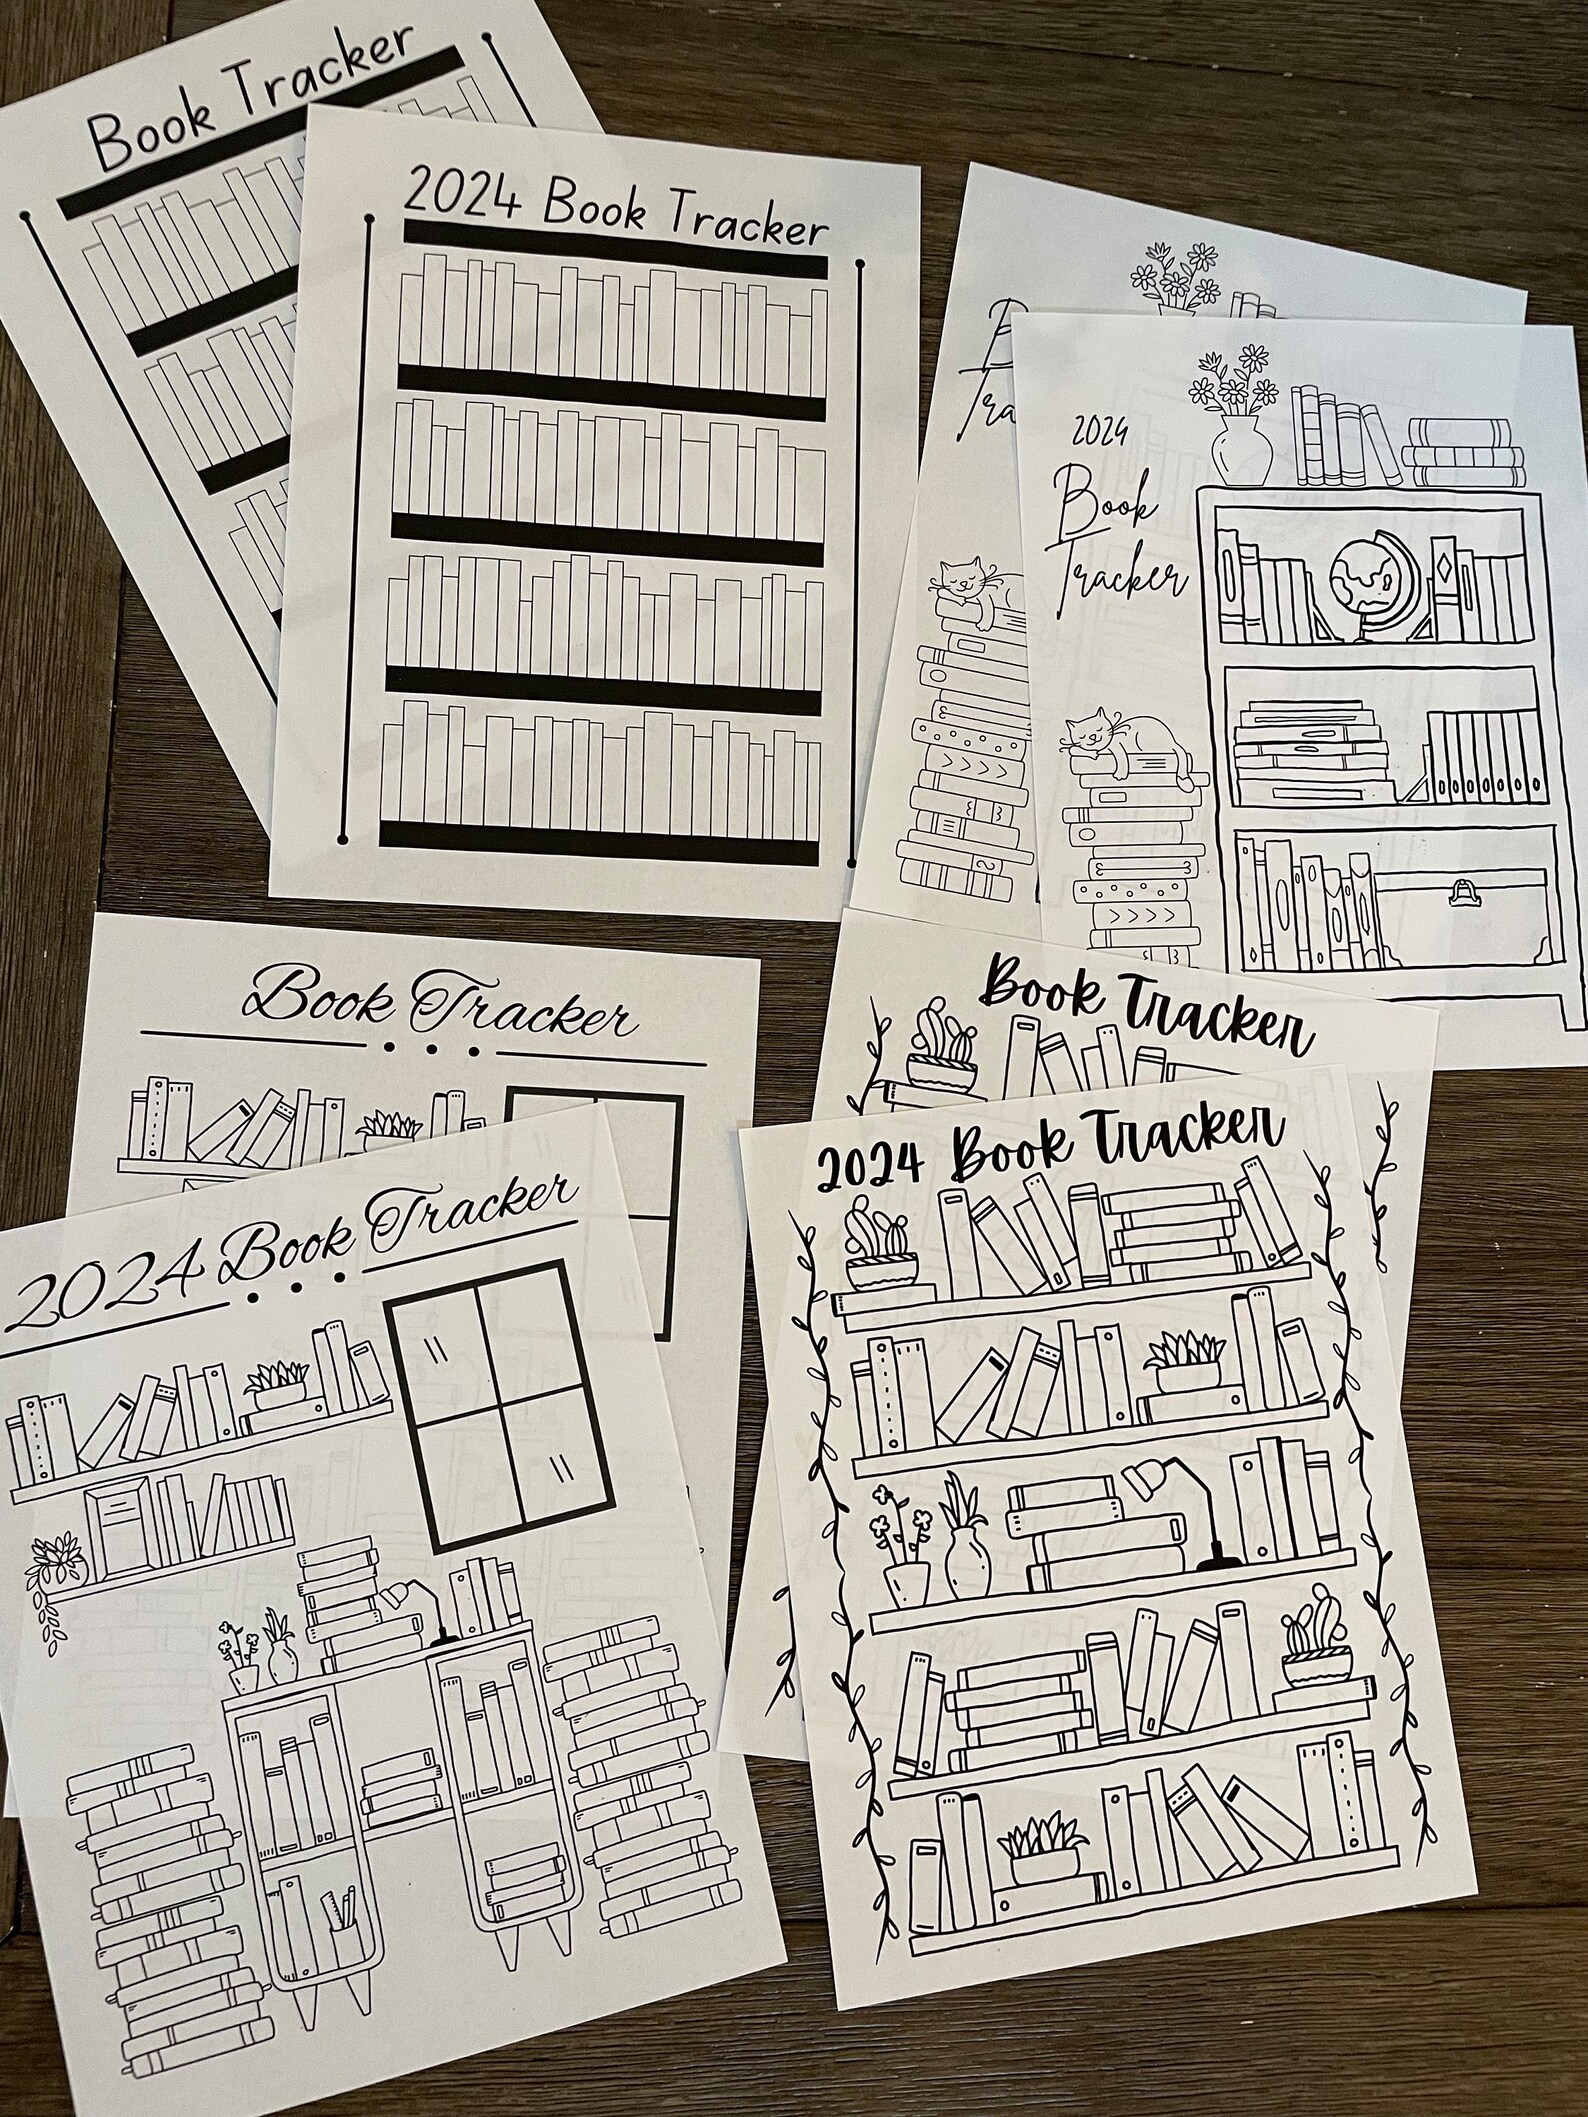 Book Tracker
2024 Book Tracker
2024
Book
Tracker
Book Tracker
Book Tracker
2024 Book Tracker
2024 Book Tracker